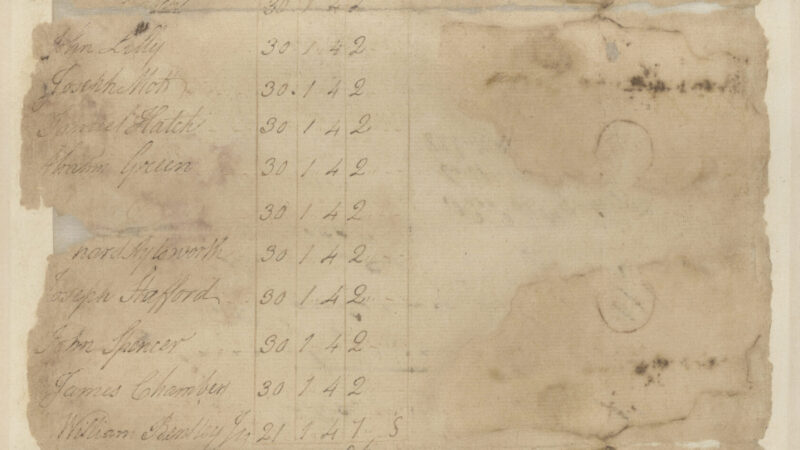 30 1 4 2
John Lilly 30 1 4 2
Joseph Mott 30. 1 4 2
Samuel Hatch 30 1 4 2
Abram Green 30 1 4 2
30 1 4 2
nard Aylsworth 30 1 4 2
Joseph Stafford 30 1 4 2
John Spencer 30 1 4 2
James Chambers 30 1 4 2
William Bentley Jr 21 1 4 7 S